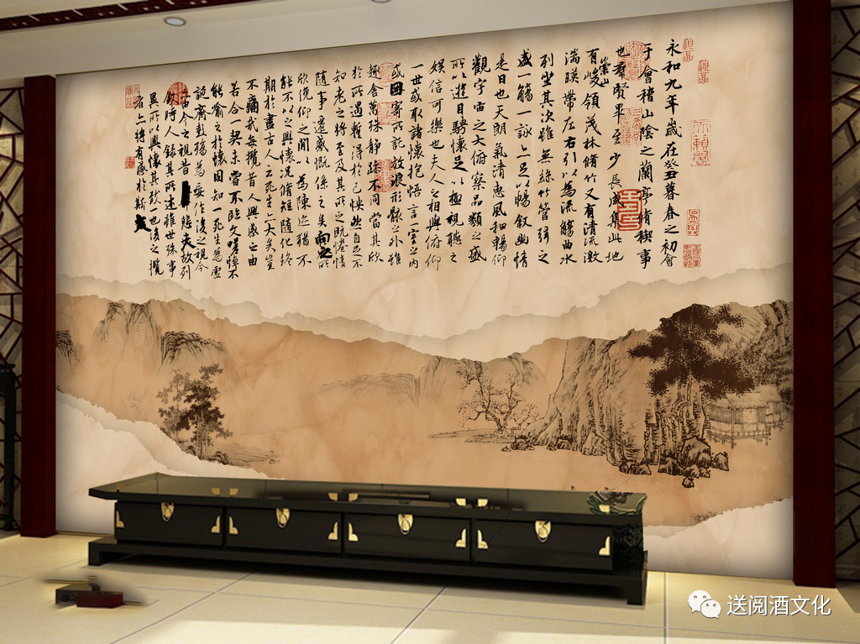 永和九年歲在癸丑暮春之初會
于會稽山陰之蘭亭脩稧事
也羣賢畢至少長咸集此地
有崇山峻領茂林脩竹又有清流激
湍暎帶左右引以為流觴曲水
列坐其次雖無絲竹管弦之
盛一觴一詠亦足以暢敘幽情
是日也天朗氣清惠風和暢仰
觀宇宙之大俯察品類之盛
所以遊目騁懷足以極視聽之
娛信可樂也夫人之相與俯仰
一世或取諸懷抱悟言一室之內
或因寄所託放浪形骸之外雖
趣舍萬殊靜躁不同當其欣
於所遇蹔得於己怏然自足不
知老之將至及其所之既惓情
隨事遷感慨係之矣向之所
欣俛仰之間以為陳迹猶不
能不以之興懷況脩短隨化終
期於盡古人云死生亦大矣豈
不痛哉每攬昔人興感之由
若合一契未嘗不臨文嗟悼不
能喻之於懷固知一死生為虛
誕齊彭殤為妄作後之視今
亦由今之視昔悲夫故列
敘時人錄其所述雖世殊事
異所以興懷其致一也後之攬
者亦將有感於斯文
送阅酒文化